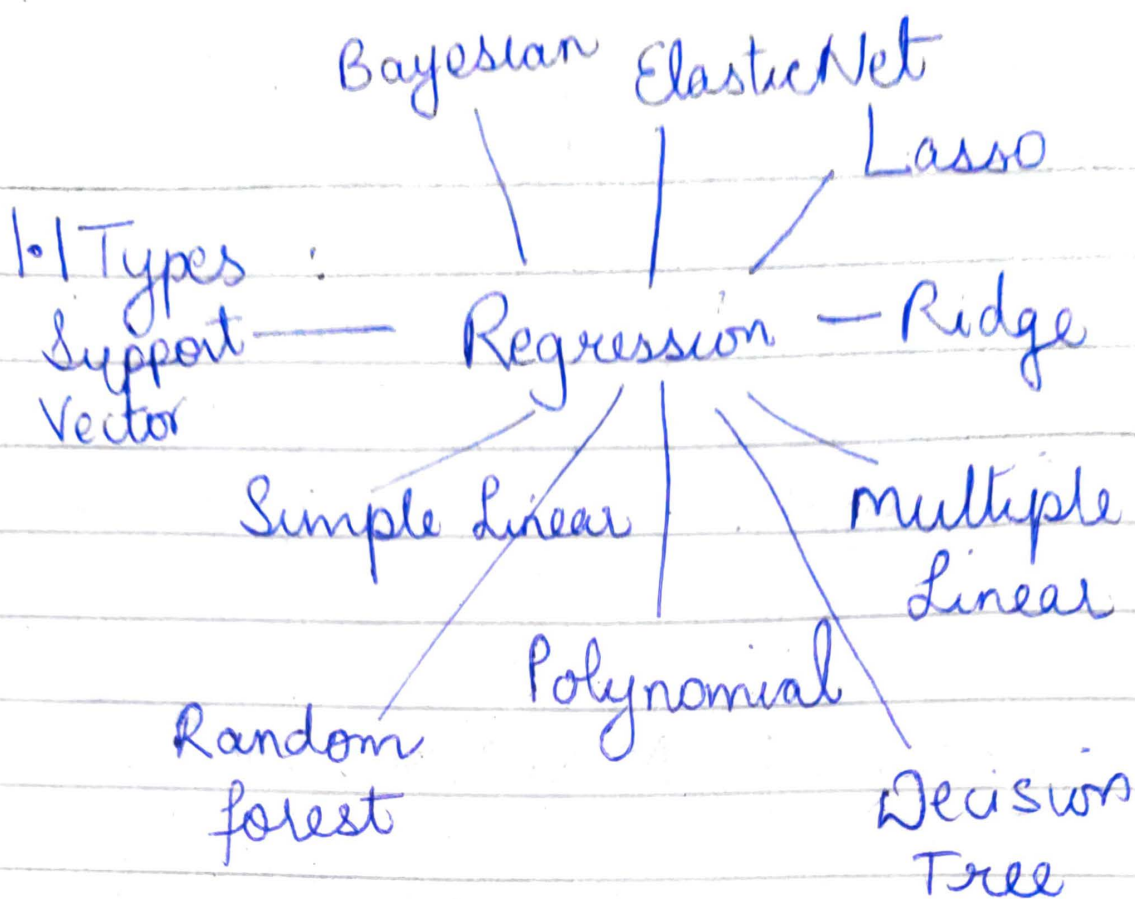 Bayesian ElasticNet
Lasso
1.1 Types :
Support Regression Ridge
Vector
Simple Linear Multiple
Linear
Polynomial
Random
forest
Decision
Tree